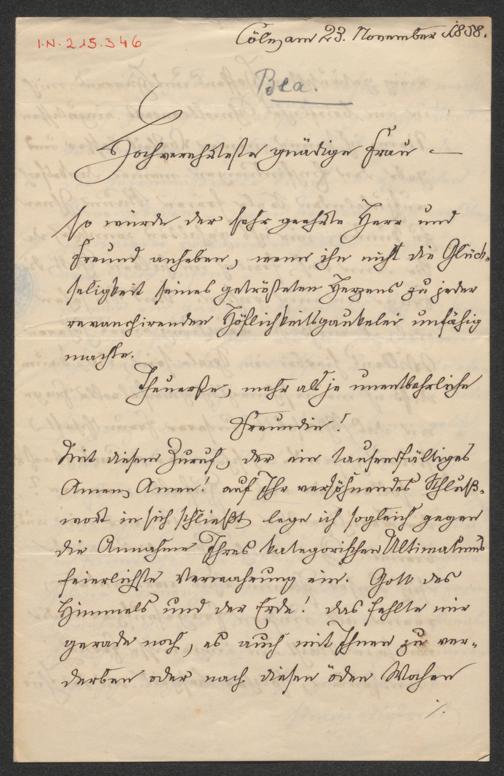 I.N. 215.346
Cöln, am 23. November 1858.
Bea.
Hochverehrteste gnädige Frau –
so würde der sehr geehrte Herr und
Freund anheben, wenn ihn nicht die Glück-
seligkeit seines getrösteten Herzens zu jeder
revanchirenden Höflichkeitsgaukelei unfähig
machte.
Theuerste, mehr als je unentbehrliche
Freundin!
Mit diesem Zuruf, der ein tausendfältiges
Amen, Amen! auf Ihr versöhnendes Schluß-
wort in sich schließt lege ich sogleich gegen
die Annahme Ihres kategorischen Ultimatums
feierlichste Verwahrung ein. Gott des
Himmels und der Erde! das fehlte mir
gerade noch, es auch mit Ihnen zu ver-
derben oder nach diesen öden Wochen
./.